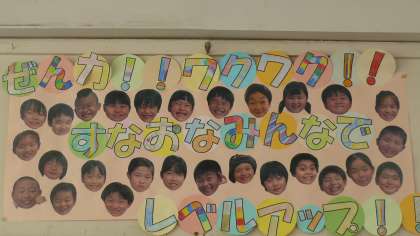 ぜんカ!!ワクワク!!
すなおなみんなで
レベルアップ!!